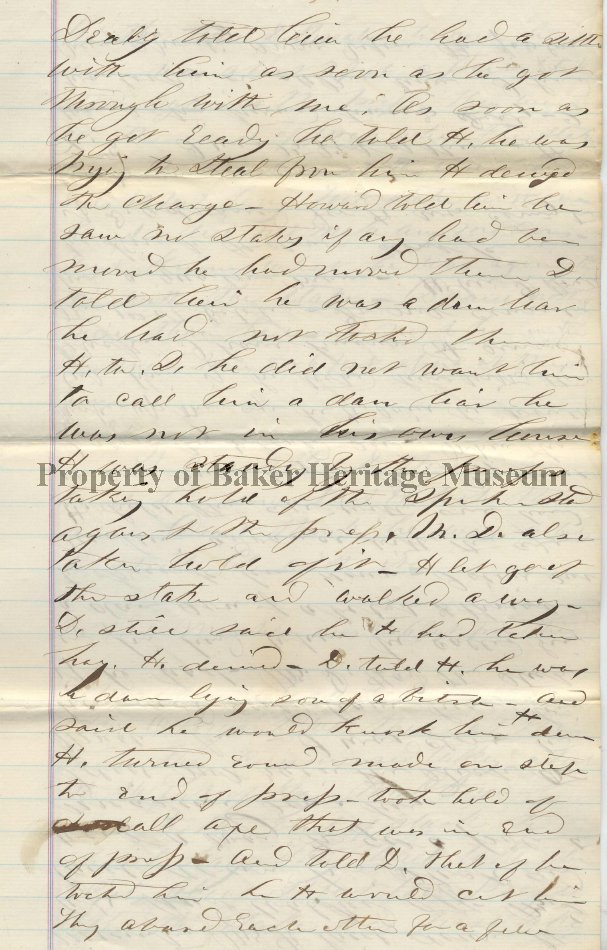 Dealy told him he had a settle
with him as soon as he got
through with me. As soon as
he got ready he told H. he was
trying to steal from him H denyed
the charge - Howard told him he
saw no stakes if any had been
moved he had moved them D.
told him he was a dam liar
he had not toched them
H. to. D. he did not want him
to call him a dam liar he
was not in his own house
H was standing by the
Property of Baker Heritage Museum
taking hold of the
against the press. Mr. D. also
taken hold of it - H let go of
the stake and walked away -
D. still said he H had taken
hay. H. denied - D. told H. he was
a dam lying son of a bitch - and
said he would knock him H down
H. turned round made one step
to end of press - took hold of
small axe that was in end
of press - and told D. that if he
toched him he H would cut him
they abused each other for a few